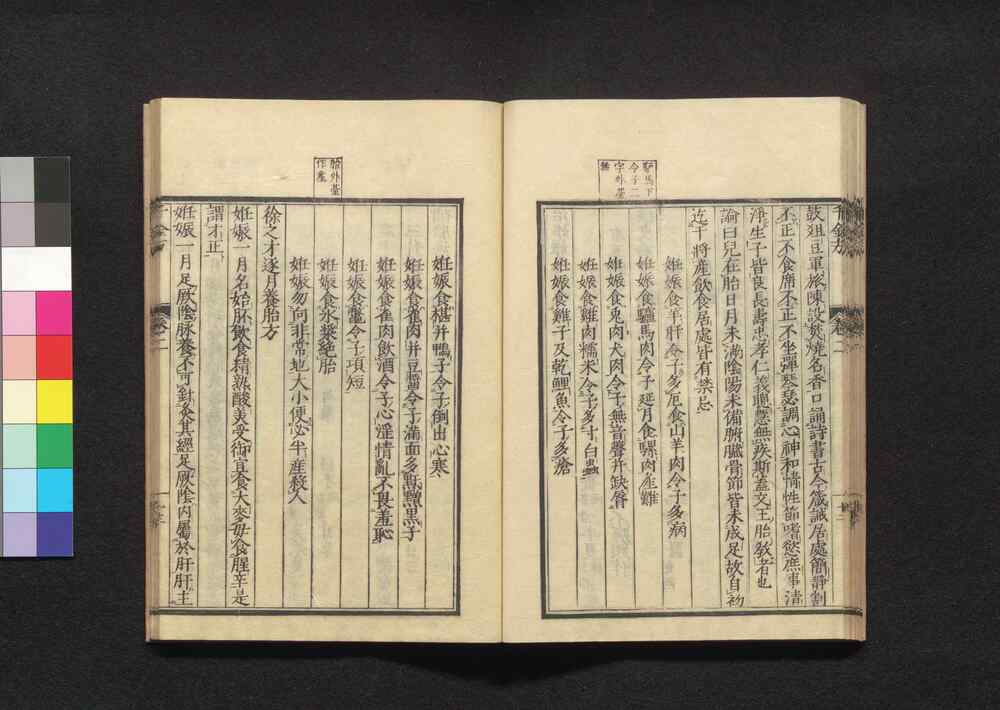 驢馬下
令子二
字外臺
無
鼓俎豆軍旅陳設焚燒名香口誦詩書古今箴誡居處簡靜割
不正不食席不正不坐彈琴瑟調心神和情性節嗜慾庶事清
淨生子皆良長壽忠孝仁義聰慧無疾斯蓋文王胎教者也
論曰兒在胎日月未滿陰陽未備腑臟骨節皆未成足故自初
迄于將產飲食居處皆有禁忌
妊娠食羊肝令子多厄食山羊肉令子多病
妊娠食驢馬肉令子延月食騾肉產難
妊娠食兎肉犬肉令子無音聲并缺脣
妊娠食雞肉糯米令子多寸白蟲
妊娠食雞子及乾鯉魚令子多瘡
千金方
卷二
胎外臺
作產
妊娠食椹并鴨子令子倒出心寒
妊娠食雀肉并豆醬令子滿面多䵟䵳黑子
妊娠食雀肉飲酒令子心淫情亂不畏羞恥
妊娠食鱉令子項短
妊娠食冰漿絕胎
妊娠勿向非常地大小便必半產殺人
徐之才逐月養胎方
妊娠一月名始胚飲食精熟酸美受御宜食大麥毋食腥辛是
謂才正
妊娠一月足厥陰脉養不可針灸其經足厥陰內屬於肝肝主
千金方
卷二